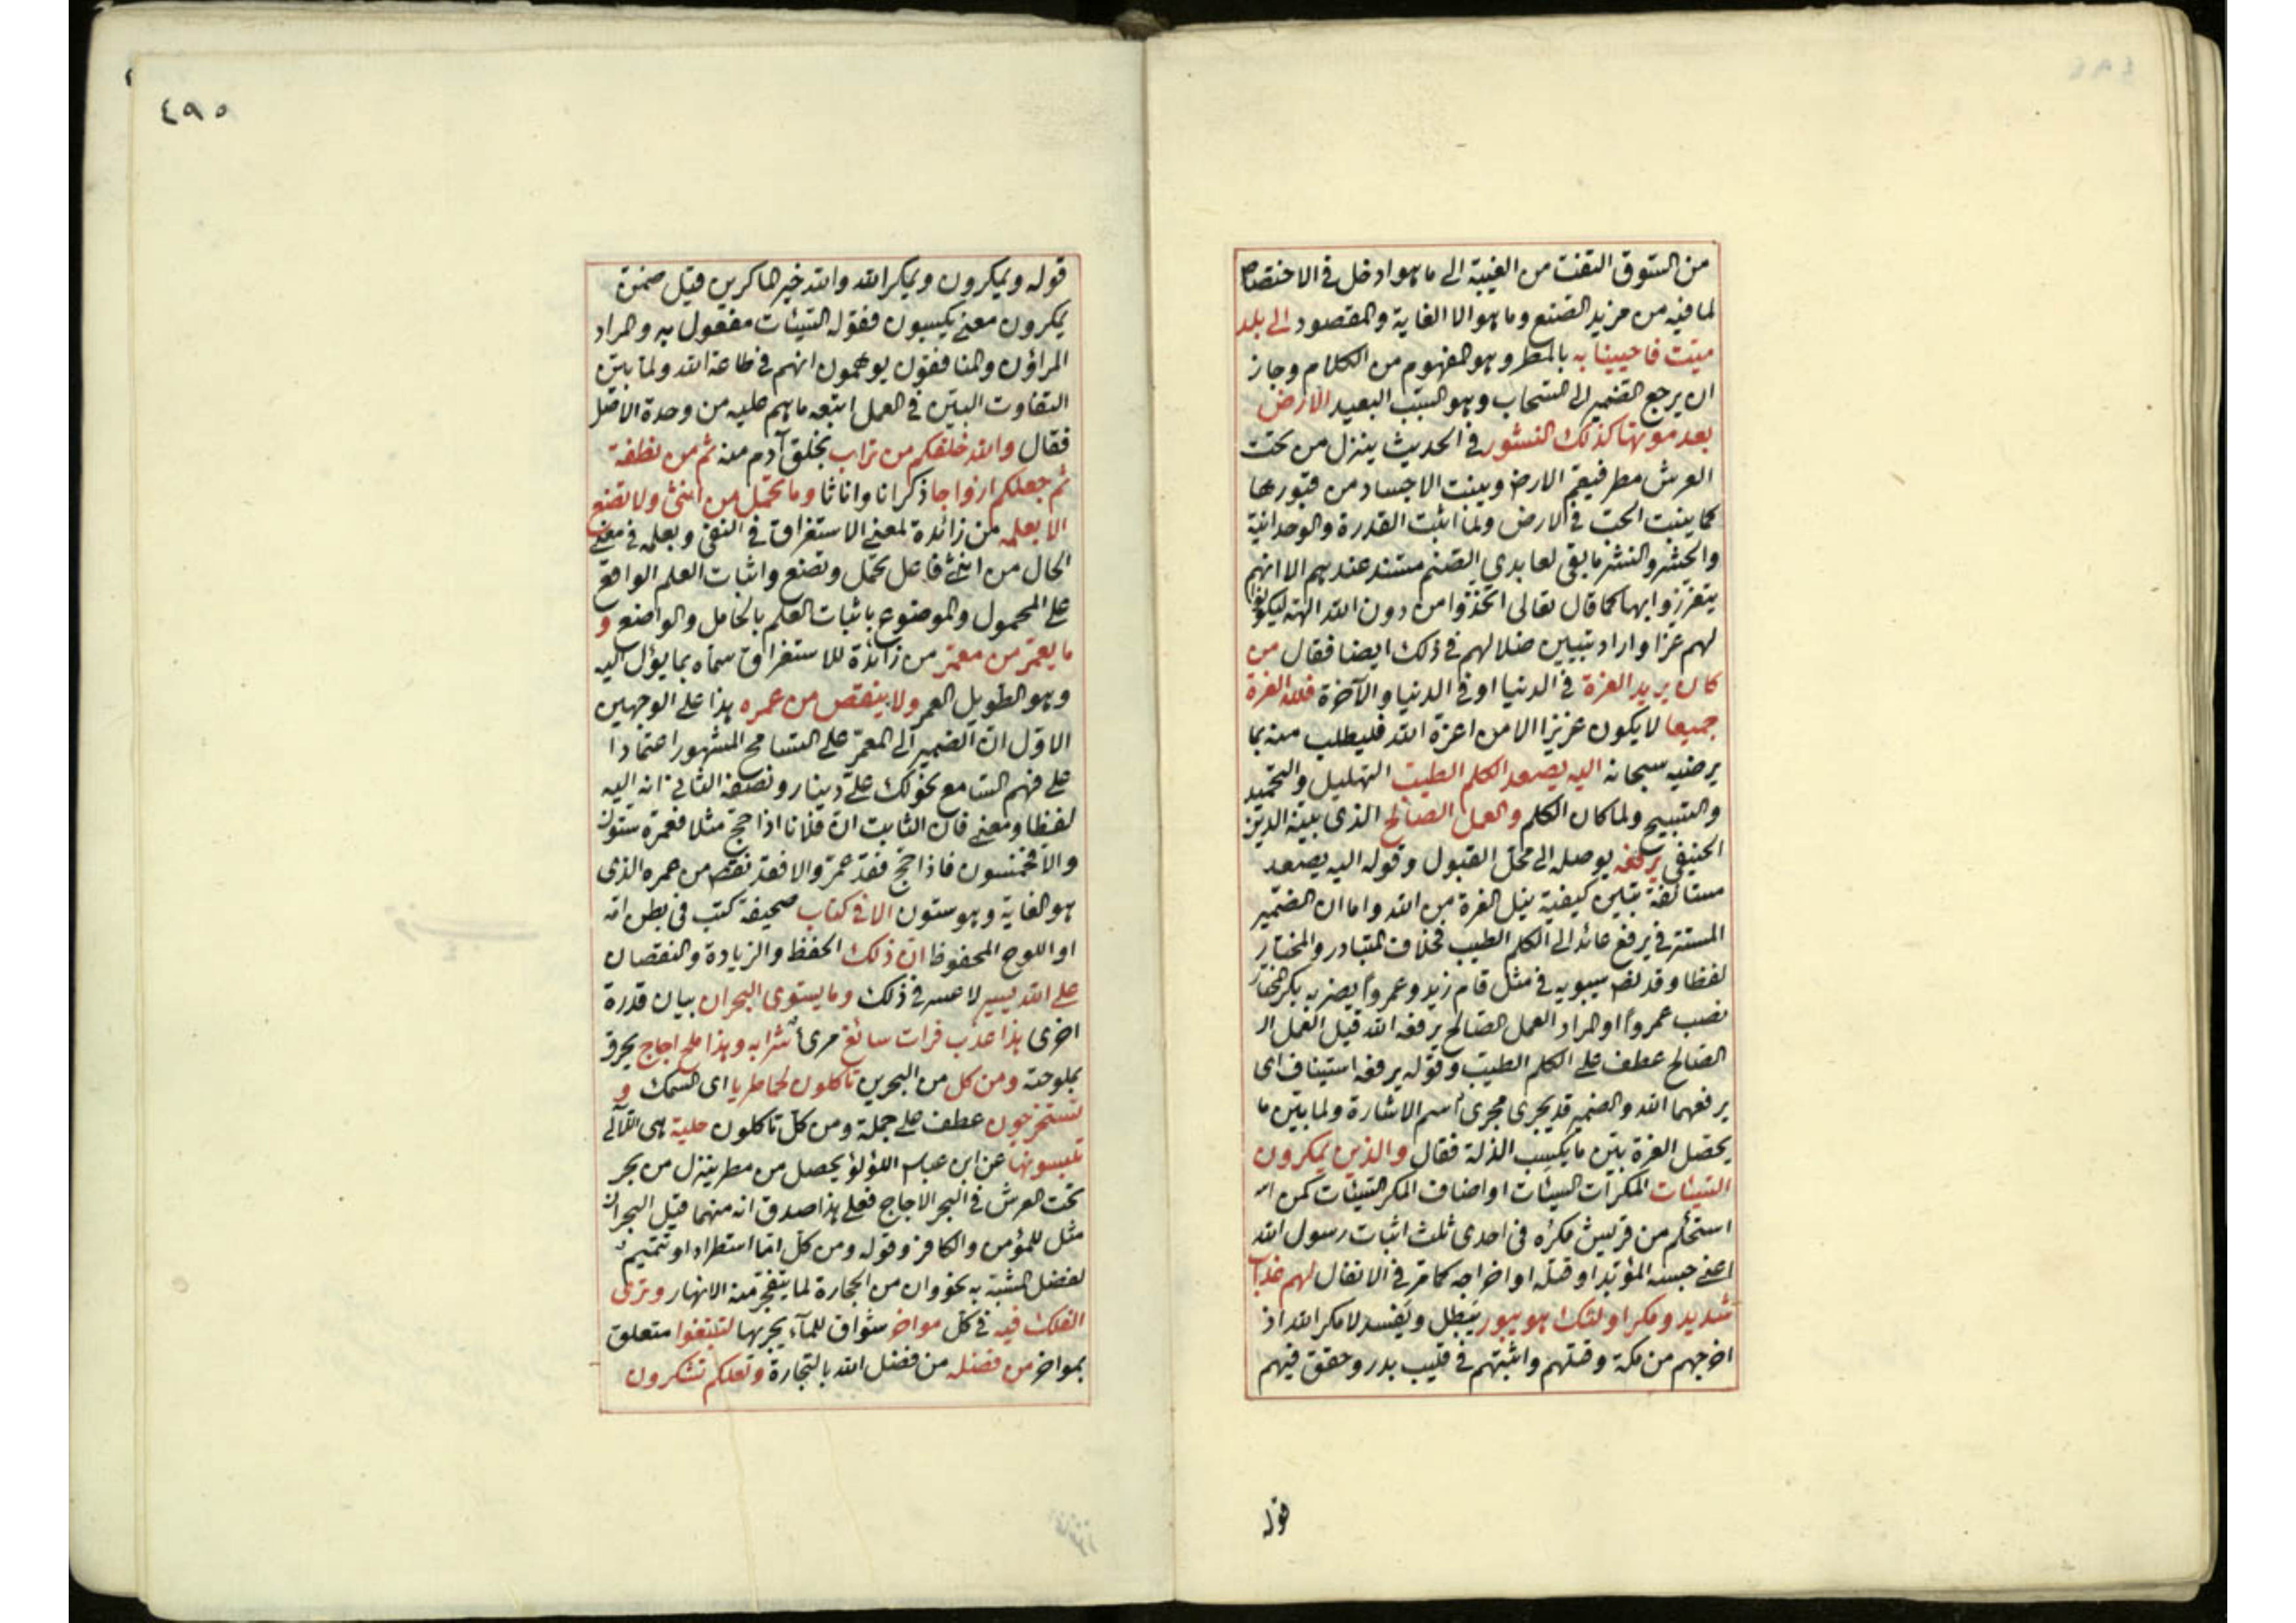 من السوق التفت من الغيبة الى ما هو ادخل في الاختصاص
لما فيه من مزيد الصنع وما هو الا الغاية والمقصود الى بلد
ميت فاحيينا به بالمطر وهو المفهوم من الكلام وجاز
ان يرجع الضمير الى السحاب وهو السبب البعيد الارض
بعد موتها كذلك النشور في الحديث ينزل من تحت
العرش مطر فيعم الارض وينبت الاجساد من قبورها
كما ينبت الحب في الارض ولما اثبت القدرة والوحدانية
والحشر والنشر ما بقى لعابدي الصنم مستند عندهم الا انهم
يتعززوا بها كما قال تعالى اتخذوا من دون الله الهة ليكونوا
لهم عزا واراد تبيين ضلالهم في ذلك ايضا فقال من
كان يريد العزة في الدنيا او في الدنيا والآخرة فلله العزة
جميعا لا يكون عزيزا الا من اعزه الله فليطلب منه بما
يرضيه سبحانه اليه يصعد الكلم الطيب التهليل والتحميد
والتسبيح ولما كان الكلم والعمل الصالح الذى بينه الدين
الحنيفي يرفعه يوصله الى محل القبول وقوله اليه يصعد
مستأنفة تبين كيفية نيل العزة من الله واما ان الضمير
المستتر في يرفع عائد الى الكلم الطيب فخلاف المتبادر والمختار
لفظا وقد نص سيبويه في مثل قام زيد وعمروا يضربه بكر المختار
نصب عمروا او المراد العمل الصالح يرفعه الله قيل العمل الـ
الصالح عطف على الكلم الطيب وقوله يرفعه استيناف اى
يرفعهما الله والضمير قد يجرى مجرى اسم الاشارة ولما بين ما
يحصل العزة بين ما يكسب الذلة فقال والذين يمكرون
السيئات المكرات السيئات او اضاف المكر السيئات كمن
استحكم من قريش مكره في احدى ثلث اثبات رسول الله
اعنى حبسه المؤبد او قتله او اخراجه كما مر في الانفال لهم عذاب
شديد ومكر اولئك هو يبور يبطل ويفسد لا مكر الله اذ
اخرجهم من مكة وقتلهم واثبتهم في قليب بدر وحقق فيهم
قوله
٤٩٥
قوله ويمكرون ويمكر الله والله خير الماكرين قيل ضمن
يمكرون معنى يكسبون فقوله السيئات مفعول به والمراد
المراؤن والمنافقون يوهمون انهم في طاعة الله ولما بين
التفاوت البين في العمل اتبعه ما هم عليه من وحدة الاصل
فقال والله خلقكم من تراب بخلق آدم منه ثم من نطفة
ثم جعلكم ازواجا ذكرانا واناثا وما تحمل من انثى ولا تضع
الا بعلمه من زائدة لمعنى الاستغراق في النفى وبعلمه في معنى
الحال من انثى فاعل تحمل وتضع واثبات العلم الواقع
على المحمول والموضوع باثبات العلم بالحامل والواضع و
ما يعمر من معمر من زائدة للاستغراق سماه بما يؤل اليه
وهو الطويل العمر ولا ينقص من عمره هذا على الوجهين
الاول ان الضمير الى المعمر على التسامح المشهور اعتمادا
على فهم السامع نحو لك على دينار ونصفه الثانى انه اليه
لفظا ومعنى فان الثابت ان فلانا اذا حج مثلا فعمره ستون
والا فخمسون فاذا حج فقد عمر والا فقد نقص من عمره الذى
هو الغاية وهو ستون الا في كتاب صحيفة كتب في بطن امه
او اللوح المحفوظ ان ذلك الحفظ والزيادة والنقصان
على الله يسير لا عسر في ذلك وما يستوى البحران بيان قدرة
اخرى هذا عذب فرات سائغ مرئ شرابه وهذا ملح اجاج يحرق
بملوحته ومن كل من البحرين تأكلون لحما طريا اى السمك و
تستخرجون عطف على جملة ومن كل تأكلون حلية هى اللآلى
تلبسونها عن ابن عباس اللؤلؤ يحصل من مطر ينزل من بحر
تحت العرش في البحر الاجاج فعلى هذا صدق انه منهما قيل البحران
مثل للمؤمن والكافر وقوله ومن كل اما استطراد او تتميم
لفضل المشبه به نحو وان من الحجارة لما يتفجر منه الانهار وترى
الفلك فيه في كل مواخر شواق للمآء بجريها لتبتغوا متعلق
بمواخر من فضله من فضل الله بالتجارة ولعلكم تشكرون